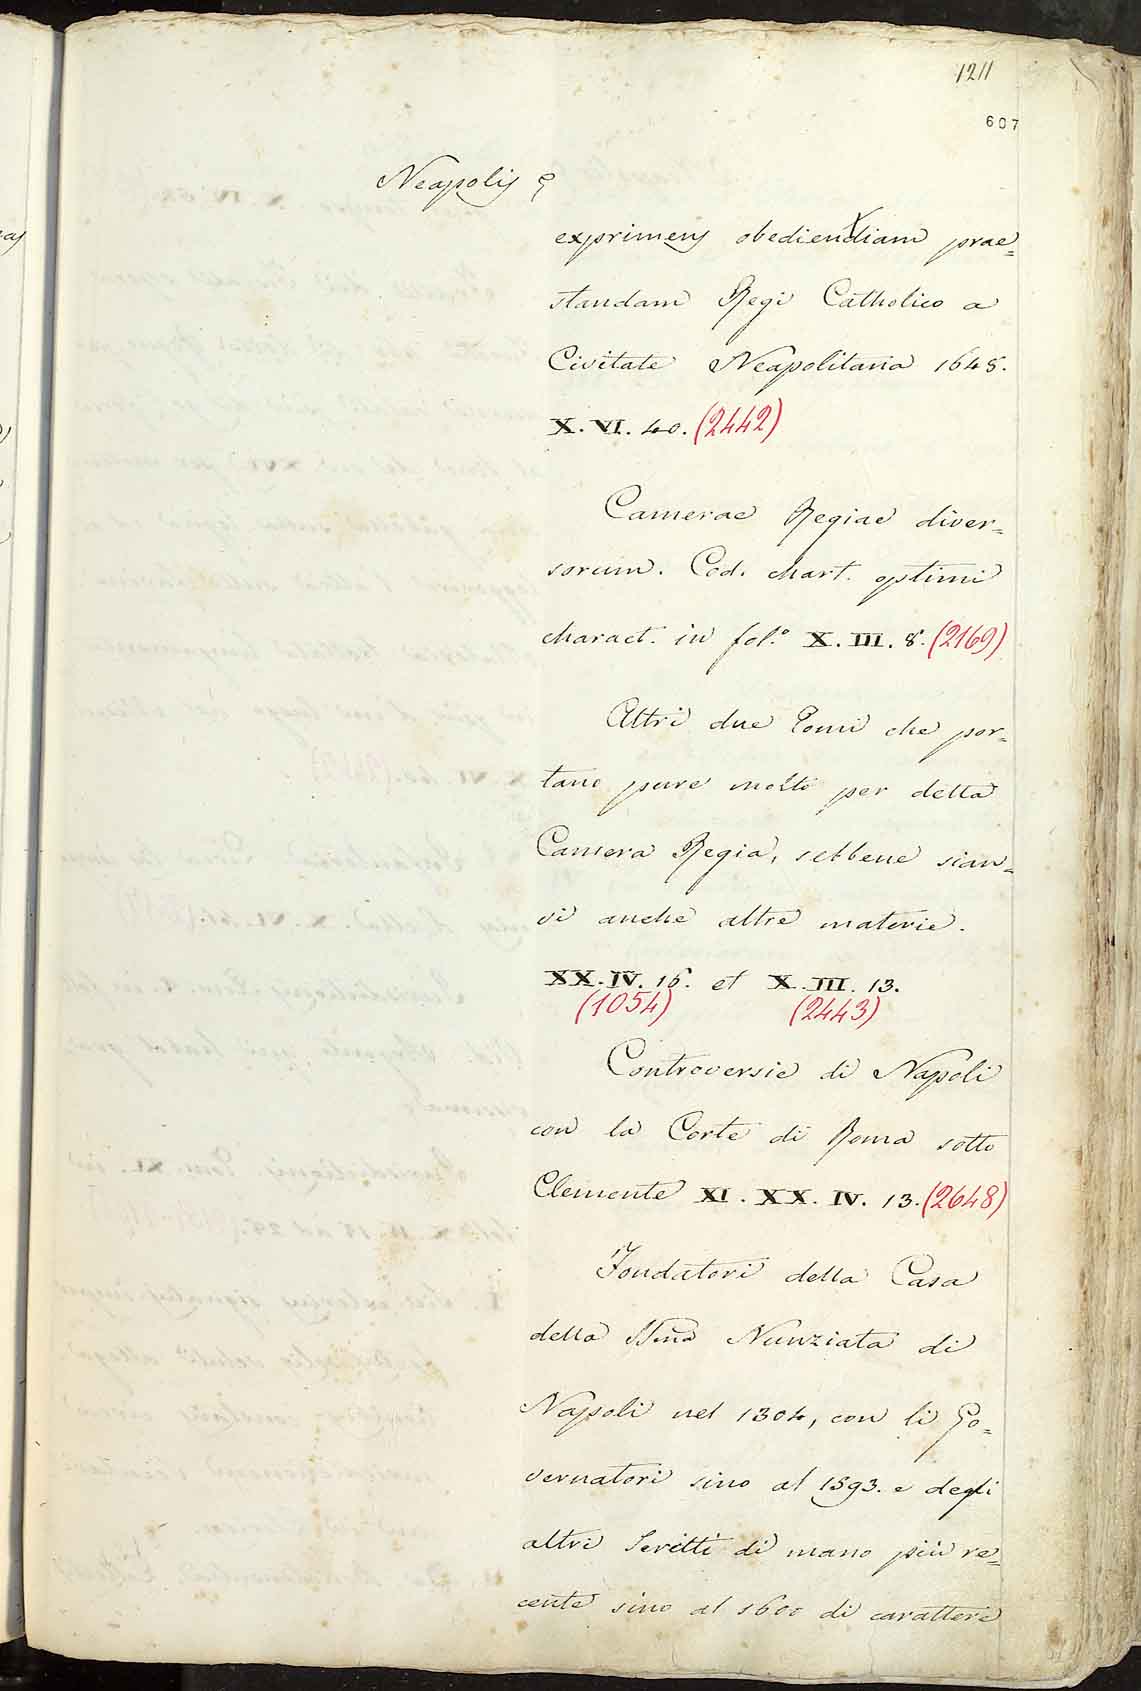 1211
607
Neapolis
exprimens obedientiam prae=
standam Regi Catholico a
Civitate Neapolitana 1648.
X. VI. 40. (2442)
Camerae Regiae diver=
sorum. Cod. chart. optimi
charact. in fol.º X. III. 8. (2169)
Altri due Tomi che por=
tano pure molto per della
Camera Regia, sebbene sian=
vi anche altre materie.
XX. IV. 16. et X. III. 13.
(1054) (2443)
Controversie di Napoli
con la Corte di Roma sotto
Clemente XI. XX. IV. 13. (2648)
Fondatori della Casa
della SSma Nunziata di
Napoli nel 1304, con li Go=
vernatori sino al 1593. e degli
altri scritti di mano più re=
cente sino al 1600 di carattere